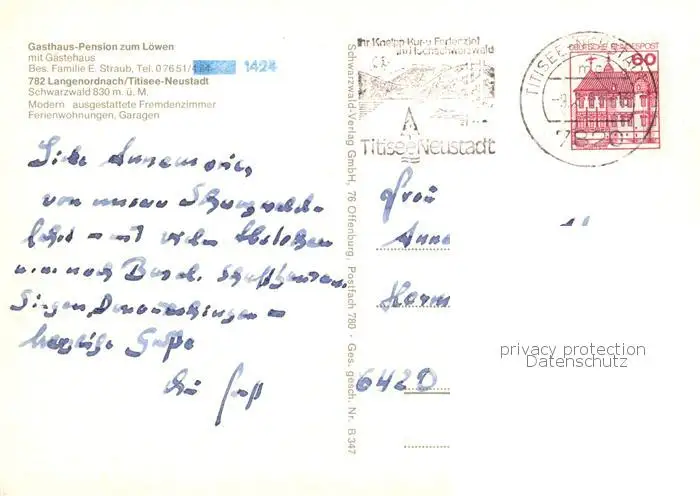 Gasthaus-Pension zum Löwen
mit Gästehaus
Bes. Familie E. Straub, Tel. 07651/ 1424
782 Langenordnach/Titisee-Neustadt
Schwarzwald 830 m. ü. M.
Modern ausgestattete Fremdenzimmer
Ferienwohnungen, Garagen
Ihr Kneipp-Kur-u. Ferienziel
im Hochschwarzwald
Titisee Neustadt
TITISEE-NEUSTADT
7820
DEUTSCHE BUNDESPOST
60
Schwarzwald-Verlag GmbH, 76 Offenburg, Postfach 780 · Ges. gesch. Nr. B 347
Liebe Annemarie,
von unserer
fahrt – mit vielen
u.a. nach Basel, Schaffhausen,
Singen, Donaueschingen –
herzliche Grüße
Frau
Anne
Herm
6420
privacy protection
Datenschutz